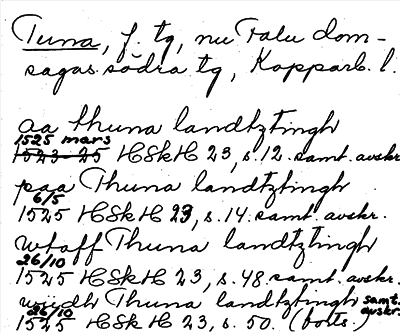 Tuna, f. tg, nu Falu dom-
sagas södra tg, Kopparb. l.
aa thuna landtztingh
1525 mars
1523-25 HSkH 23, s. 12. samt. avskr.
paa Thuna landtztingh
6/5
1525 HSkH 23, s. 14. samt. avskr.
wtaff Thuna landtztingh
26/10
1525 HSkH 23, s. 48. samt. avskr.
wiidh Thuna landtztingh samt. avskr.
26/10
1525 HSkH 23, s. 50. (forts.)